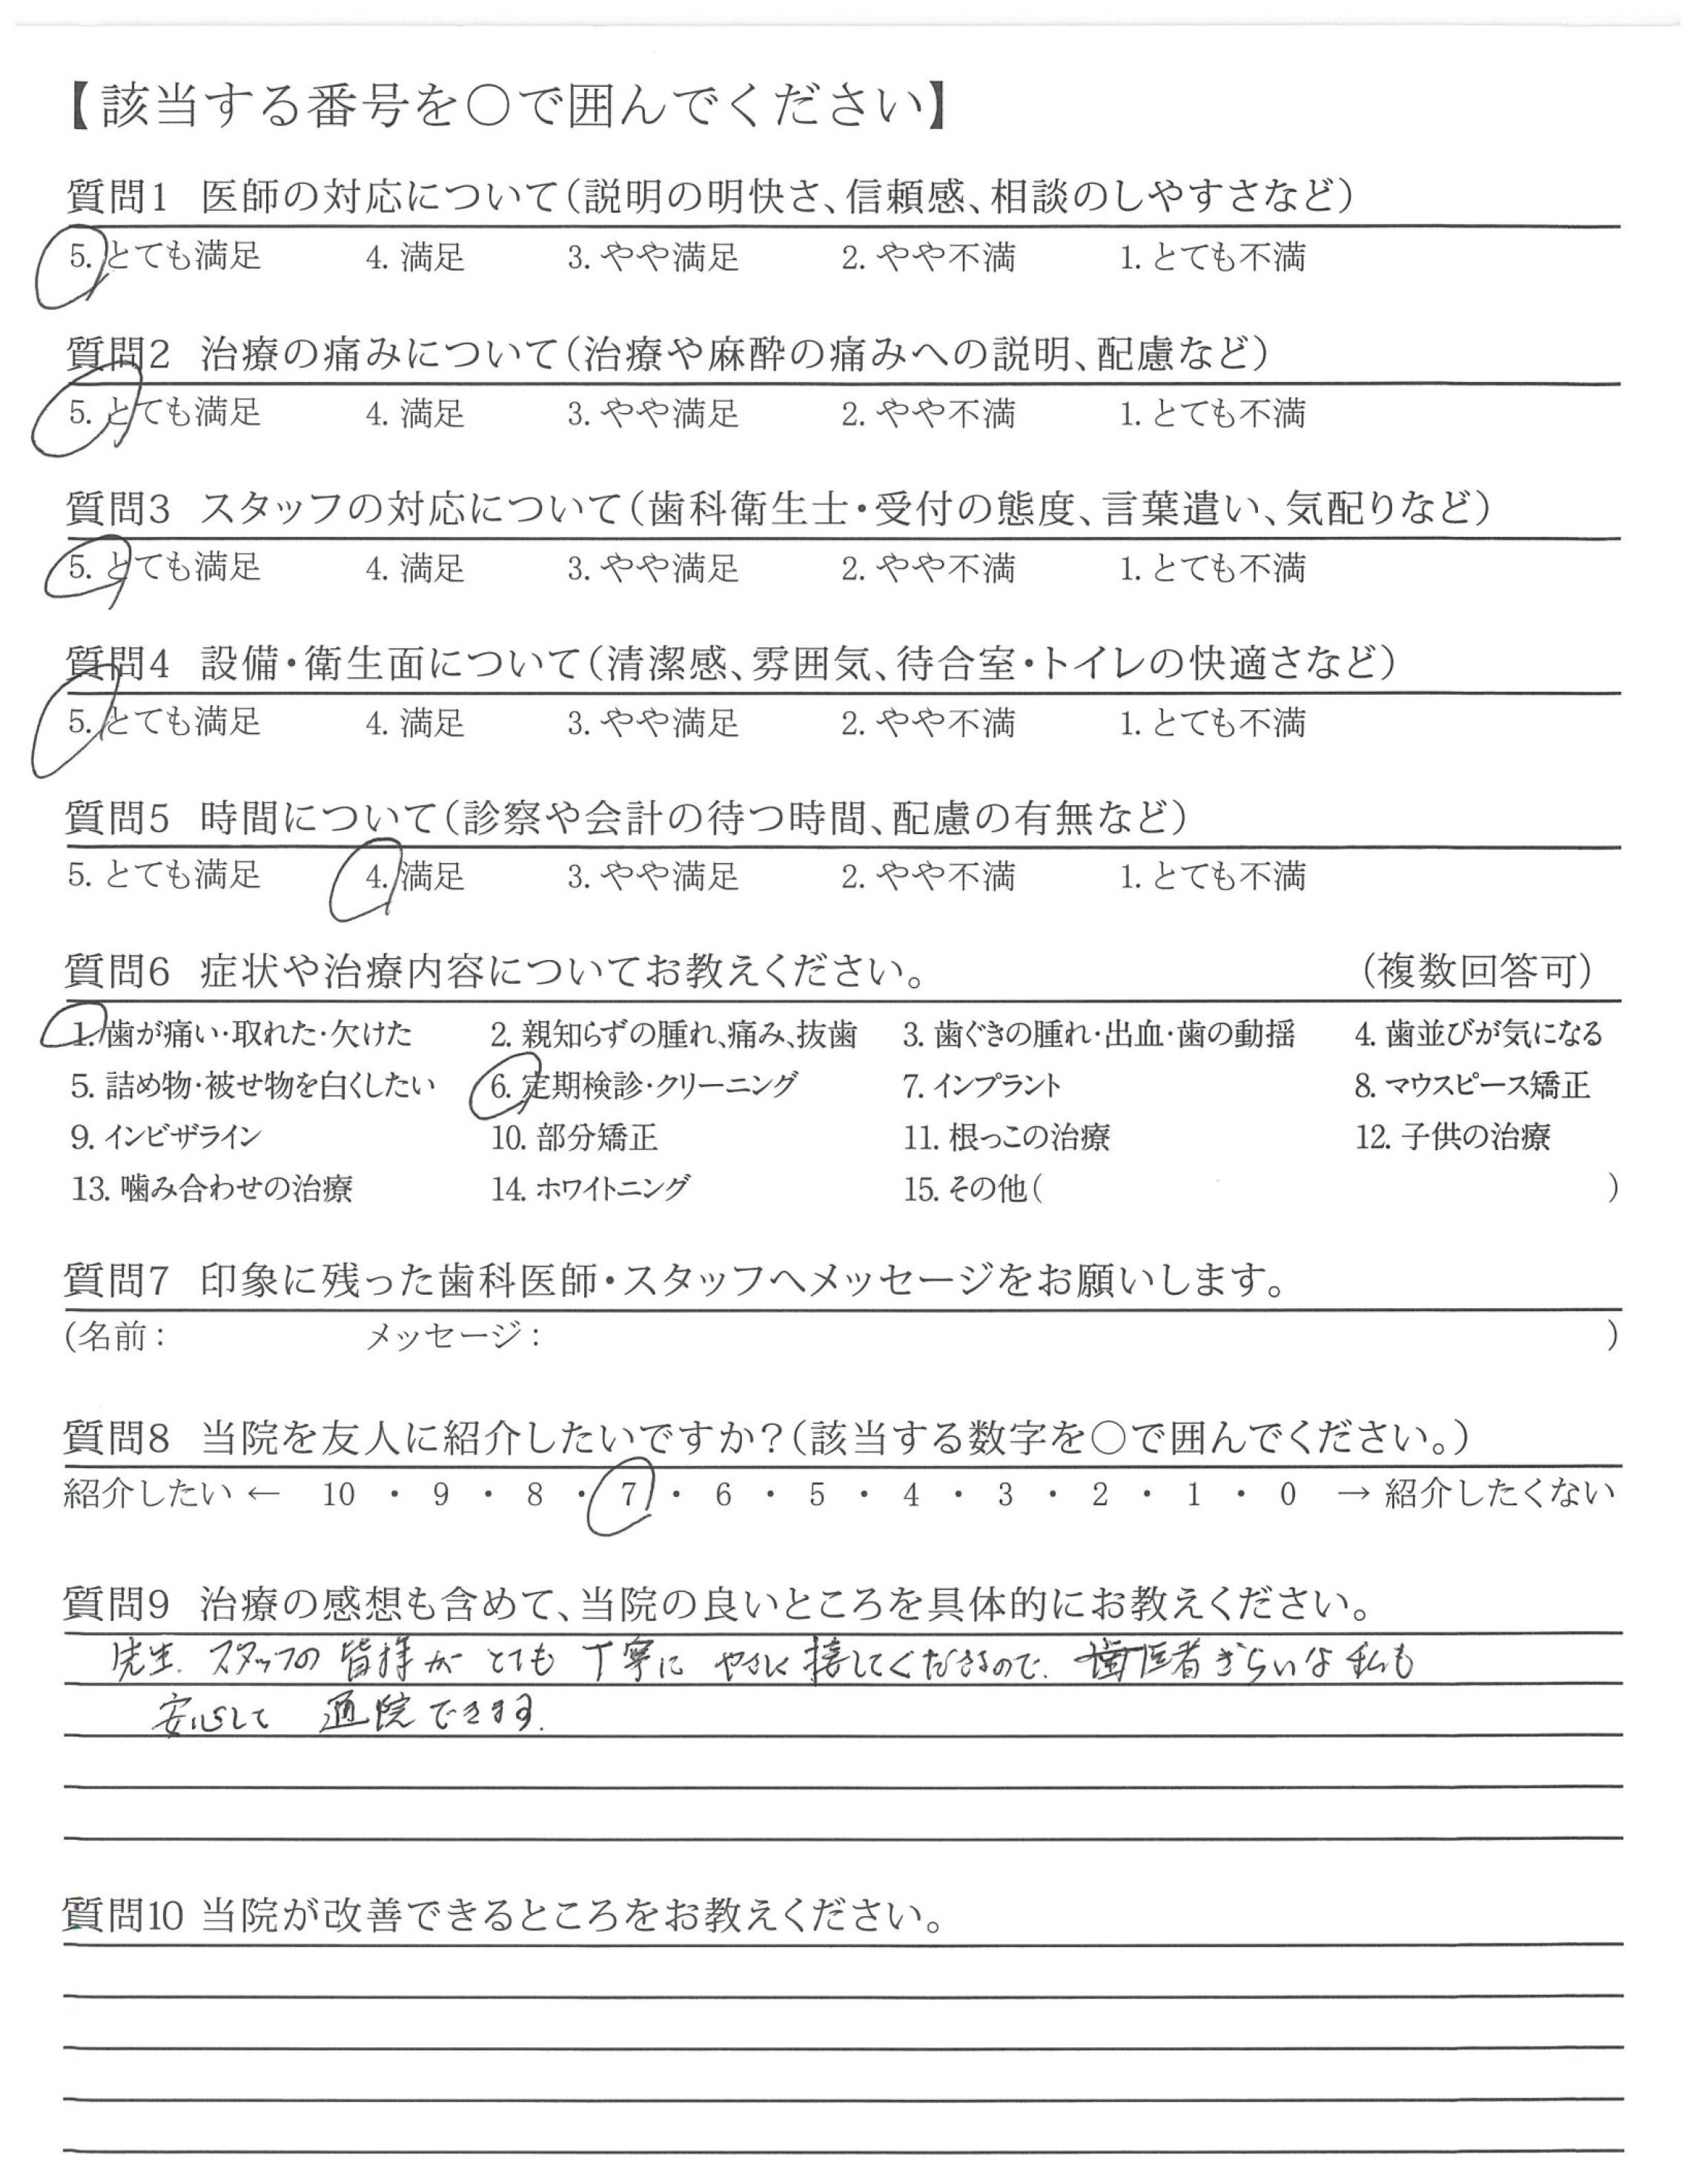 【該当する番号を○で囲んでください】
質問1 医師の対応について(説明の明快さ、信頼感、相談のしやすさなど)
5. とても満足 4. 満足 3. やや満足 2. やや不満 1. とても不満
質問2 治療の痛みについて(治療や麻酔の痛みへの説明、配慮など)
5. とても満足 4. 満足 3. やや満足 2. やや不満 1. とても不満
質問3 スタッフの対応について(歯科衛生士・受付の態度、言葉遣い、気配りなど)
5. とても満足 4. 満足 3. やや満足 2. やや不満 1. とても不満
質問4 設備・衛生面について(清潔感、雰囲気、待合室・トイレの快適さなど)
5. とても満足 4. 満足 3. やや満足 2. やや不満 1. とても不満
質問5 時間について(診察や会計の待つ時間、配慮の有無など)
5. とても満足 4. 満足 3. やや満足 2. やや不満 1. とても不満
質問6 症状や治療内容についてお教えください。 (複数回答可)
1. 歯が痛い・取れた・欠けた 2. 親知らずの腫れ、痛み、抜歯 3. 歯ぐきの腫れ・出血・歯の動揺 4. 歯並びが気になる
5. 詰め物・被せ物を白くしたい 6. 定期検診・クリーニング 7. インプラント 8. マウスピース矯正
9. インビザライン 10. 部分矯正 11. 根っこの治療 12. 子供の治療
13. 噛み合わせの治療 14. ホワイトニング 15. その他( )
質問7 印象に残った歯科医師・スタッフへメッセージをお願いします。
(名前: メッセージ: )
質問8 当院を友人に紹介したいですか?(該当する数字を○で囲んでください。)
紹介したい ← 10 ・ 9 ・ 8 ・ 7 ・ 6 ・ 5 ・ 4 ・ 3 ・ 2 ・ 1 ・ 0 → 紹介したくない
質問9 治療の感想も含めて、当院の良いところを具体的にお教えください。
先生、スタッフの皆様がとても丁寧に やさしく接してくださるので、歯医者ぎらいな私も
安心して 通院できます。
質問10 当院が改善できるところをお教えください。